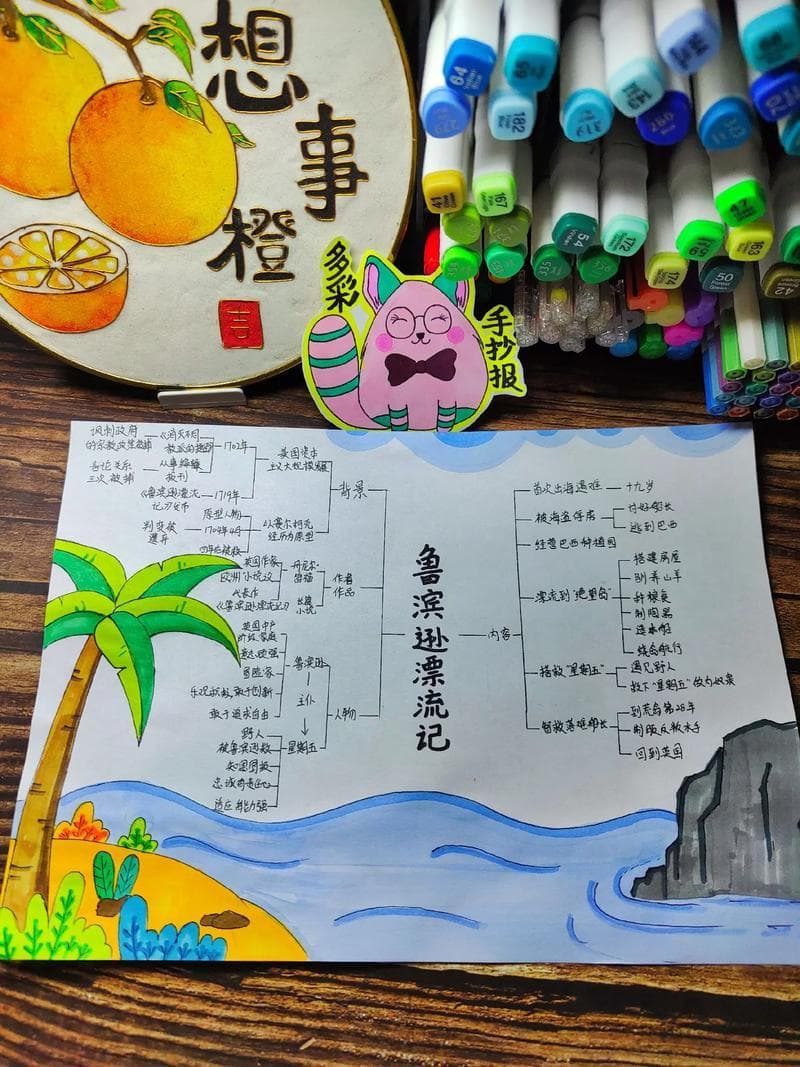 想
事
橙
吉
多彩
手抄报
64
69
182
167
54
172
47
163
174
50
42
鲁滨逊漂流记
背景
英国资本
主义大规模
1702年
《消灭不同
教派的捷径》
讽刺政府
的宗教政策
从事编辑
报刊
言论关系
三次被捕
1719年
《鲁滨逊漂流
记》发布
以赛尔柯克
经历为原型
原型人物
1704年4月
判叛被
遗弃
四年后被救
作者
作品
丹尼尔·
笛福
英国作家
欧洲"小说之
长篇
小说
代表作
《鲁滨逊漂流记》
人物
鲁滨逊
英国中产
阶级家庭
意志顽强
冒险家
乐观积极、敢于创新
敢于追求自由
主仆
星期五
野人
被鲁滨逊救
知恩图报
忠诚有责任心
适应能力强
内容
首次出海遇难
十九岁
被海盗俘虏
讨好船长
逃到巴西
经营巴西种植园
漂流到"绝望岛"
搭建房屋
驯养山羊
种粮食
制陶器
造木船
绕岛航行
搭救"星期五"
遇见野人
救下"星期五"做为奴隶
智救落难船长
到荒岛第28年
制服反叛水手
回到英国